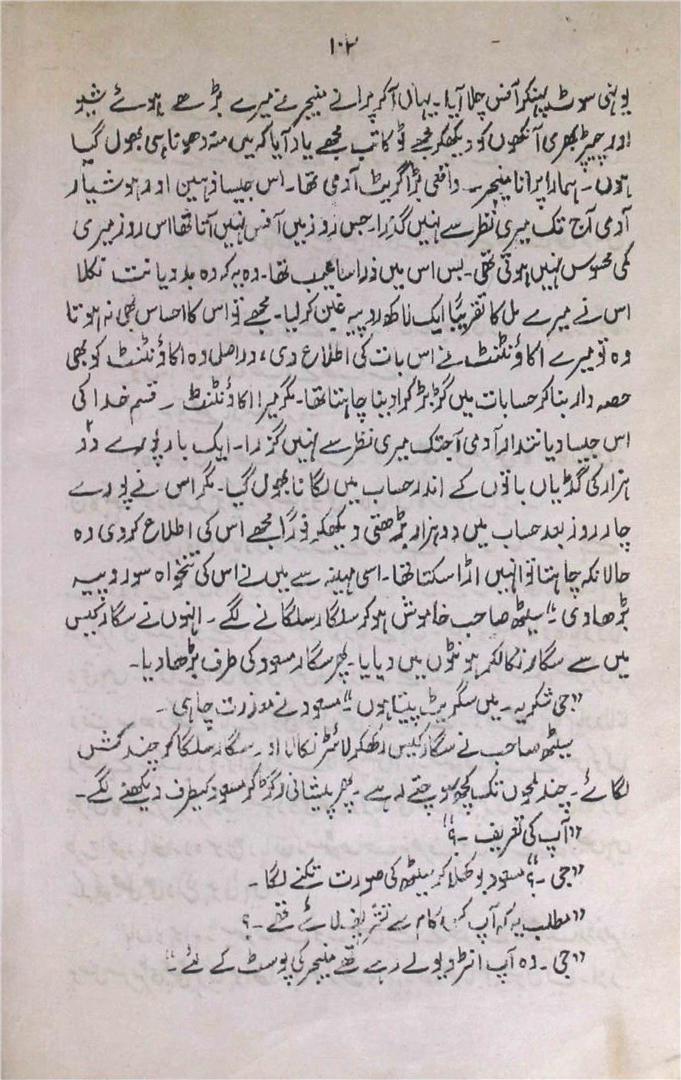 ۱۰۲
یونہی سوٹ پہنکر آفس چلا آیا۔ یہاں آکر پرانے منیجر نے میرے بڑھے ہوئے شیو
اور چیپڑ بھری آنکھوں کو دیکھکر مجھے ٹوکا تب مجھے یاد آیا کہ میں منہ دھونا ہی بھول گیا
ہوں۔ ہمارا پرانا منیجر۔ واقعی بڑا گریٹ آدمی تھا۔ اس جیسا ذہین اور ہوشیار
آدمی آج تک میری نظر سے نہیں گذرا۔ جس روز میں آفس نہیں آتا تھا اس روز میری
کمی محسوس نہیں ہوتی تھی۔ بس اس میں ذرا سا عیب تھا۔ وہ یہ کہ وہ بددیانت نکلا
اس نے میرے مل کا تقریباً ایک لاکھ روپیہ غبن کر لیا۔ مجھے تو اس کا احساس بھی نہ ہوتا
وہ تو میرے اکاؤنٹنٹ نے اس بات کی اطلاع دی، دراصل وہ اکاؤنٹنٹ کو بھی
حصہ دار بنا کر حسابات میں گڑبڑ کرا دینا چاہتا تھا۔ مگر میرا اکاؤنٹنٹ۔ قسم خدا کی
اس جیسا دیانتدار آدمی آجتک میری نظر سے نہیں گزرا۔ ایک بار پورے دو
ہزار کی گڈیاں باتوں کے اندر حساب میں لگانا بھول گیا۔ مگر اس نے پورے
چار روز بعد حساب میں دو ہزار بڑھتی دیکھکر فوراً مجھے اس کی اطلاع کر دی وہ
حالانکہ چاہتا تو انہیں اڑا سکتا تھا۔ اسی مہینہ سے میں نے اس کی تنخواہ سو روپیہ
بڑھا دی۔" سیٹھ صاحب خاموش ہو کر سگار سلگانے لگے۔ انہوں نے سگار کیس
میں سے سگار نکالکر ہونٹوں میں دبایا۔ پھر سگار مسعود کی طرف بڑھا دیا۔
"جی شکریہ۔ میں سگریٹ پیتا ہوں" مسعود نے معذرت چاہی۔
سیٹھ صاحب نے سگار کیس رکھکر لائٹر نکالا اور سگار سلگا کر چند کش
لگائے۔ چند لمحوں تک کچھ سوچتے رہے۔ پھر پیشانی رگڑ کر مسعود کیطرف دیکھنے لگے۔
"آپ کی تعریف۔؟"
"جی۔؟" مسعود بوکھلا کر سیٹھ کی صورت تکنے لگا۔
"مطلب یہ کہ آپ کس کام سے تشریف لائے تھے۔؟
"جی۔ وہ آپ انٹرویو لے رہے تھے منیجر کی پوسٹ کے لئے۔"